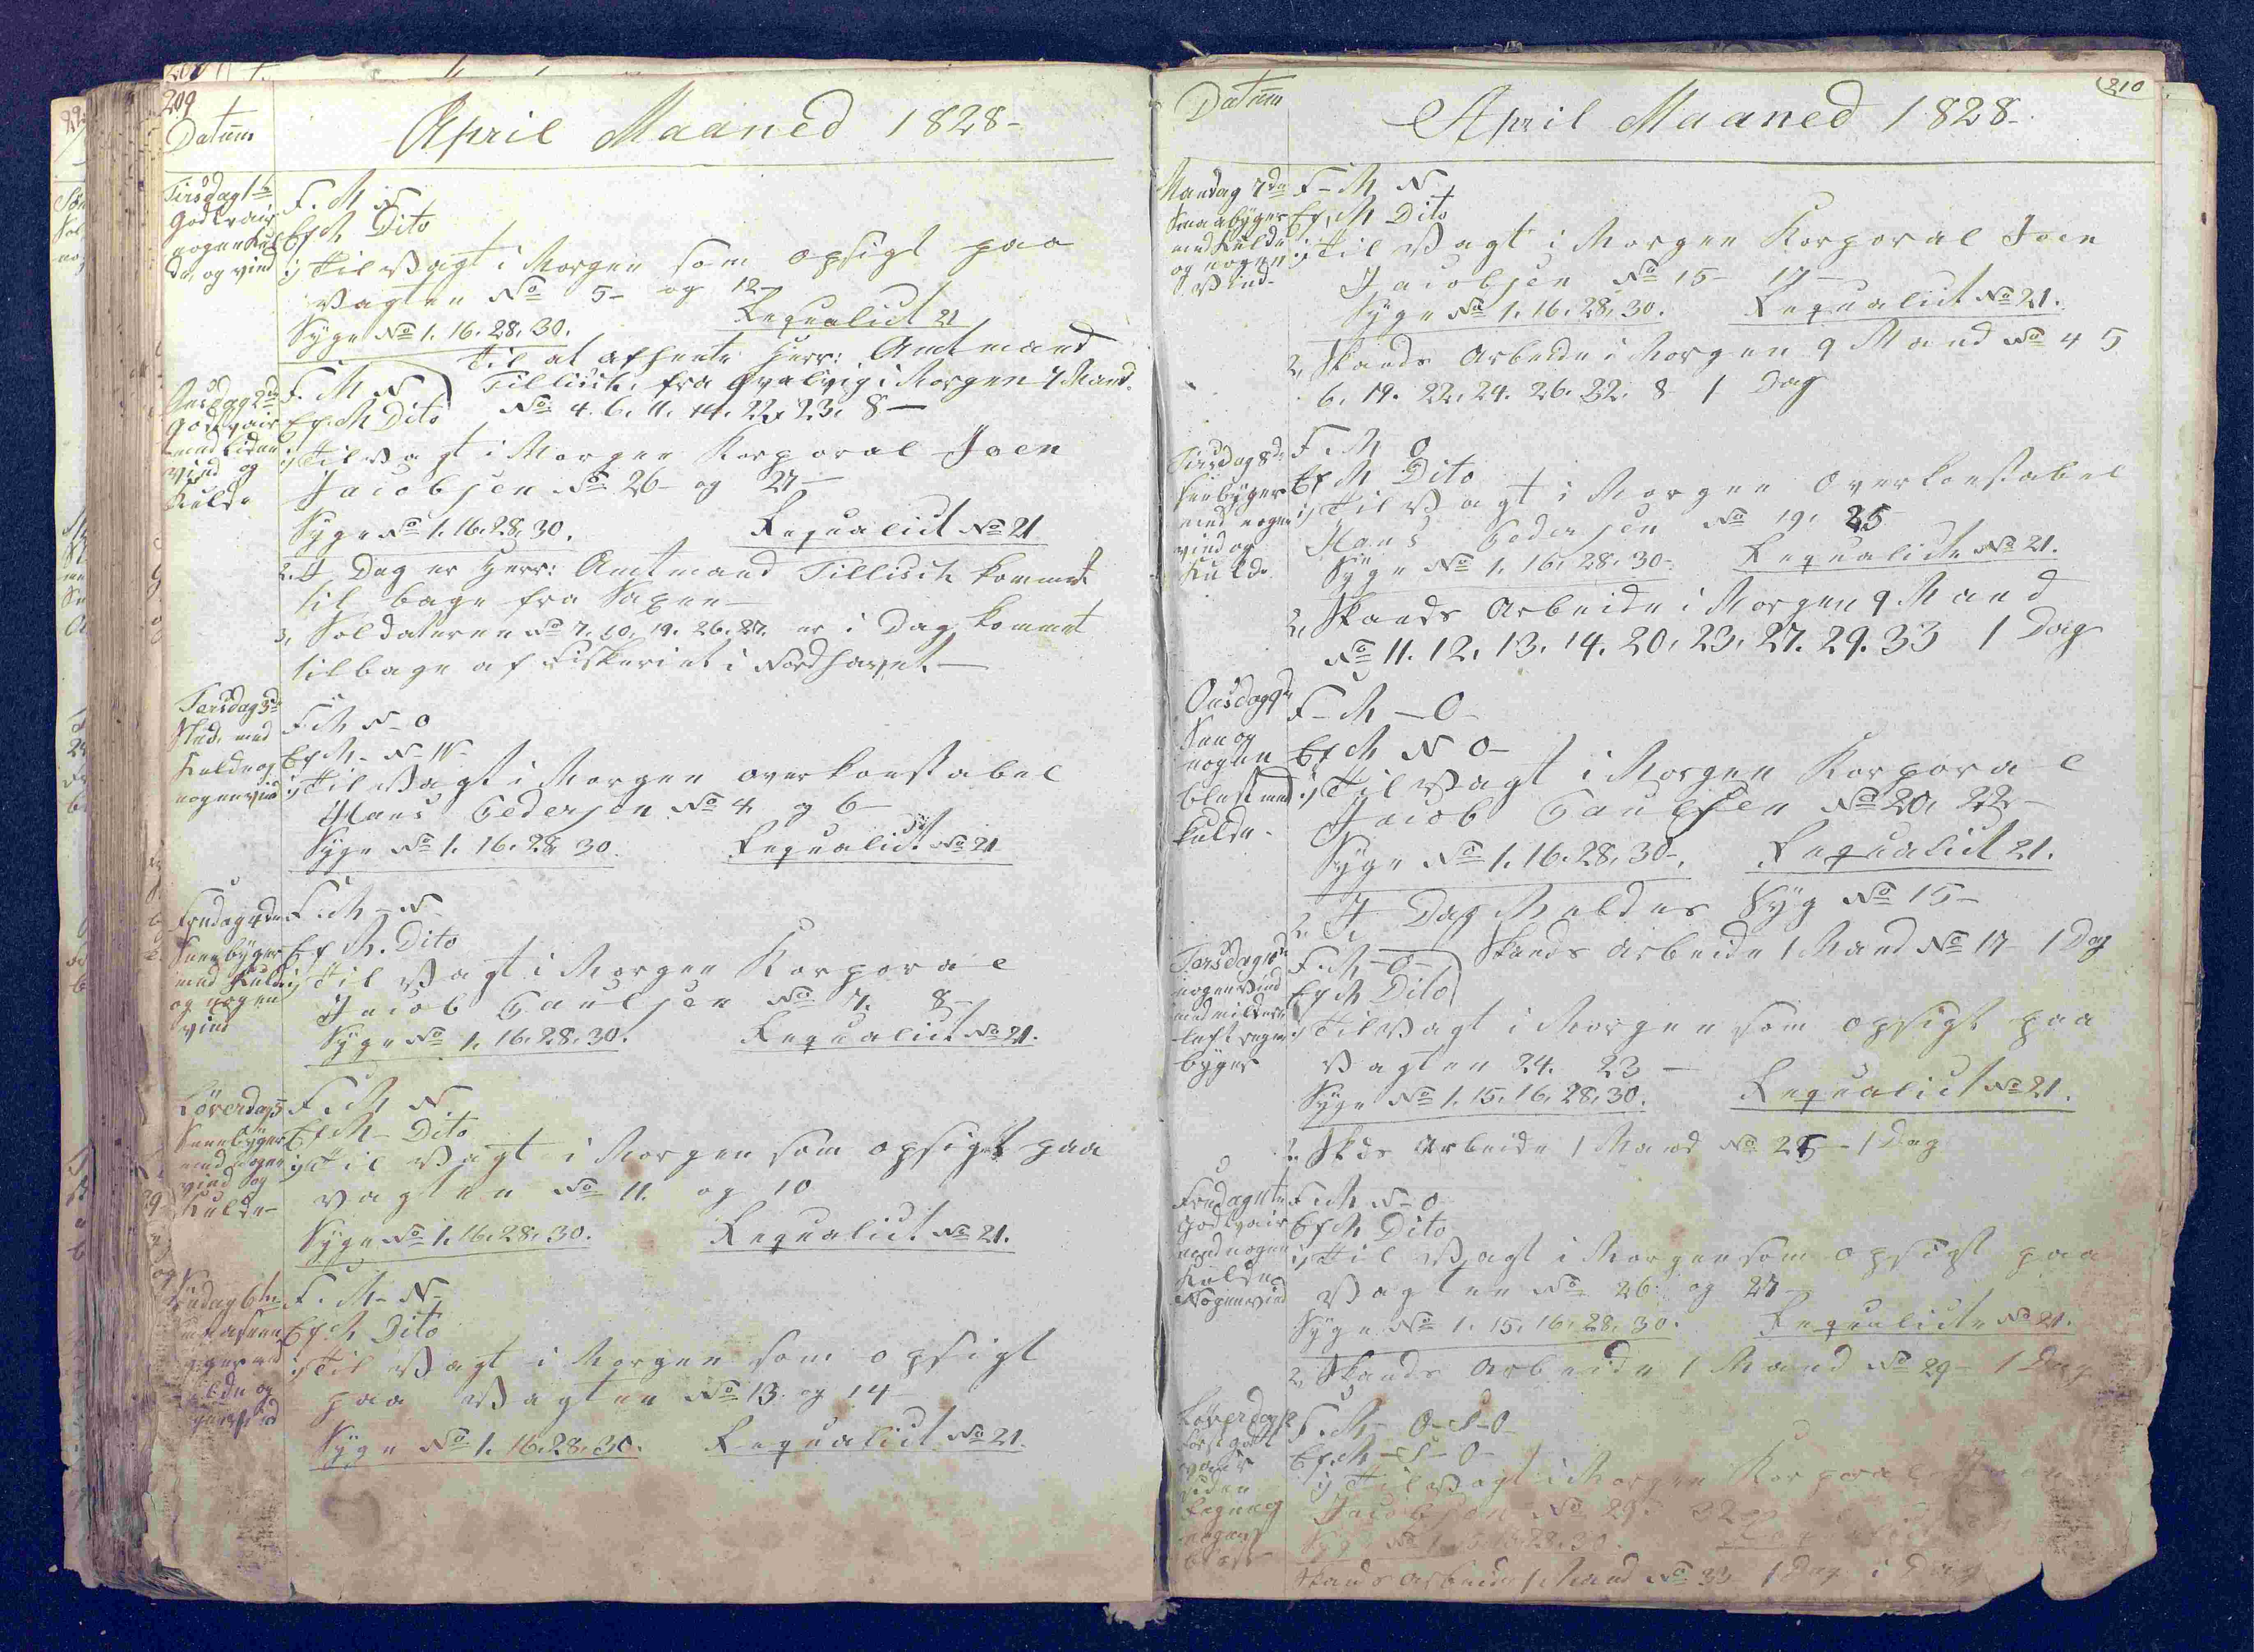 209
Datum
April Maaned 1828-
Tirsdag 1te
godt vair
nogen Kul
de, og vind
F. M N
Ef M Dito
1, Til Vagt i Morgen som opsigt paa
Vagten No 5- og 12-
Syge No 1. 16. 28. 30. Requalict 21
Onsdag 2de
godt vair
med liden
vind og
Kulde
F. M N
Ef. M Dito
Til at afhente Herr: Amtmand
Tillisch fra Qvalvig i Morgen 7 Mand
No 4. 6. 11. 14. 22. 23. 8-
1, Til Vagt i Morgen Korporal Joen
Jacobsen No 26- og 27-
Syge No 1. 16. 28. 30. Requalict No 21
2. I Dag er Herr: Amtmand Tillisch kommet
til bage fra Saxen-
3, Soldaterne No 7. 10. 19. 26. 27. er i Dag kommet
tilbage af Fiskeriet i Nordhavet-
Torsdag 3de
Stud med
Kulde og
nogen vind
F. M N-O
Ef M- N-W-
1, Til Vagt i Morgen overkonstabel
Hans Pedersen No 4 og 6-
Syge No 1. 16. 28. 30. Requalict No 21
Fredag 4de
Sneebyger
med Kulde
og nogen
vind
F. M- N-
Ef M. Dito
1, Til Vagt i Morgen Korporal
Jacob Paulsen No 7. 8-
Syge No 1. 16. 28. 30. Requalict No 21.
Löverdag 5
Sneebyger
med nogen
vind og
Kulde-
F. M N
Ef M- Dito
1, Til Vagt i Morgen som opsigt paa
vagten No 11. og 10
Syge No 1. 16. 28. 30. Requalict No 21.
Sndag 6te
F. M- N-
Ef. M Dito
1, Til Vagt i Morgen som opsigt
paa Vagten No 13. og 14-
Syge No 1. 16. 28. 30. Requalict No 21.
210
Datum
April Maaned 1828-
Mandag 7de
Smaabyger
med Kulde
og nogen
Vind-
F- M N-
Ef, M Dito
1, Til Vagt i Morgen Korporal Joen
Jacobsen No 15- 17-
Syge No 1. 16. 28. 30. Requalict No 21.
2, Skands Arbeide i Morgen 9 Mand No 4 5
6. 19. 22. 24. 26. 32. 8 1 Dag
Tirsdag 8de
Sneebyger
med nogen
vind og
Kulde
F. M O
Ef M Dito
1, Til Vagt i Morgen Overkonstabel
Hans Pedersen No 19. 25
Syge No 1. 16. 28. 30- Requalict No 21.
2, Skands Arbeide i Morgen 9 Mand
No 11. 12. 13. 14. 20. 23. 27. 29. 33 1 Dag
Onsdag 9de
Snee og
nogen
blæst med
kulde-
F- M -O-
Ef M N O-
1, Til Vagt i Morgen Korporal
Jacob Paulsen No 20, 22-
Syge No 1. 16. 28. 30-. Requalict 21.
2 I Dag Meldes Syg No 15-
Torsdag 10de
nogen vind
med mildere
luft regn
byger
F. M -O-
Ef M Dito
Skands Arbeide 1 Mand No 17 1 Dag
1, Til Vagt i Morgen som opsigt paa
Vagten 24. 23-
Syge No 1. 15. 16. 28. 30. Requalict No 21.
2. Skds Arbeide 1 Mand No 25- 1 Dag
Fredag 11te
godt vair
med nogen
Kulde
Nogen vind
F. M N-O
Ef M Dito
1, Til Vagt i Morgen som opsigt paa
Vagten No 26. og 27-
Syge No 1. 15. 16. 28. 30. Requalict No 21.
2, Skands Arbeide 1 Mand No 29- 1 Dag
Löverdag 12
Først godt
vair
siden
Regn og
nogen
F. M- O-S-O-
Ef. M -S-O-
1, Til Vagt i Morgen Korporal Joen
Jacobsen No 29. 32
Syge No 1. 15. 16. 28. 30.
Skands Arbeide 1 Mand No 33 1 Dag i Dag